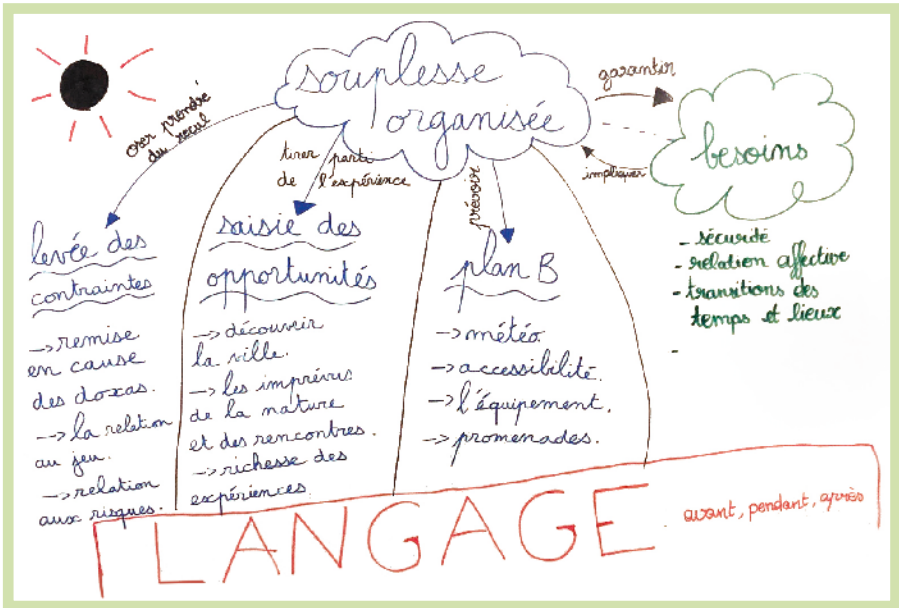 souplesse
organisée
garantir
besoins
impliquer
- sécurité
- relation affective
- transitions des
temps et lieux
-
oser prendre
du recul
levée des
contraintes
-> remise
en cause
des doxas.
--> la relation
au jeu.
-> relation
aux risques.
tirer parti
de l'expérience
saisie des
opportunités
-> découvrir
la ville.
-> les imprévus
de la nature
et des rencontres.
-> richesse des
expériences.
prévoir
plan B
-> météo.
-> accessibilité.
-> l'équipement.
-> promenades.
LANGAGE
avant, pendant, après